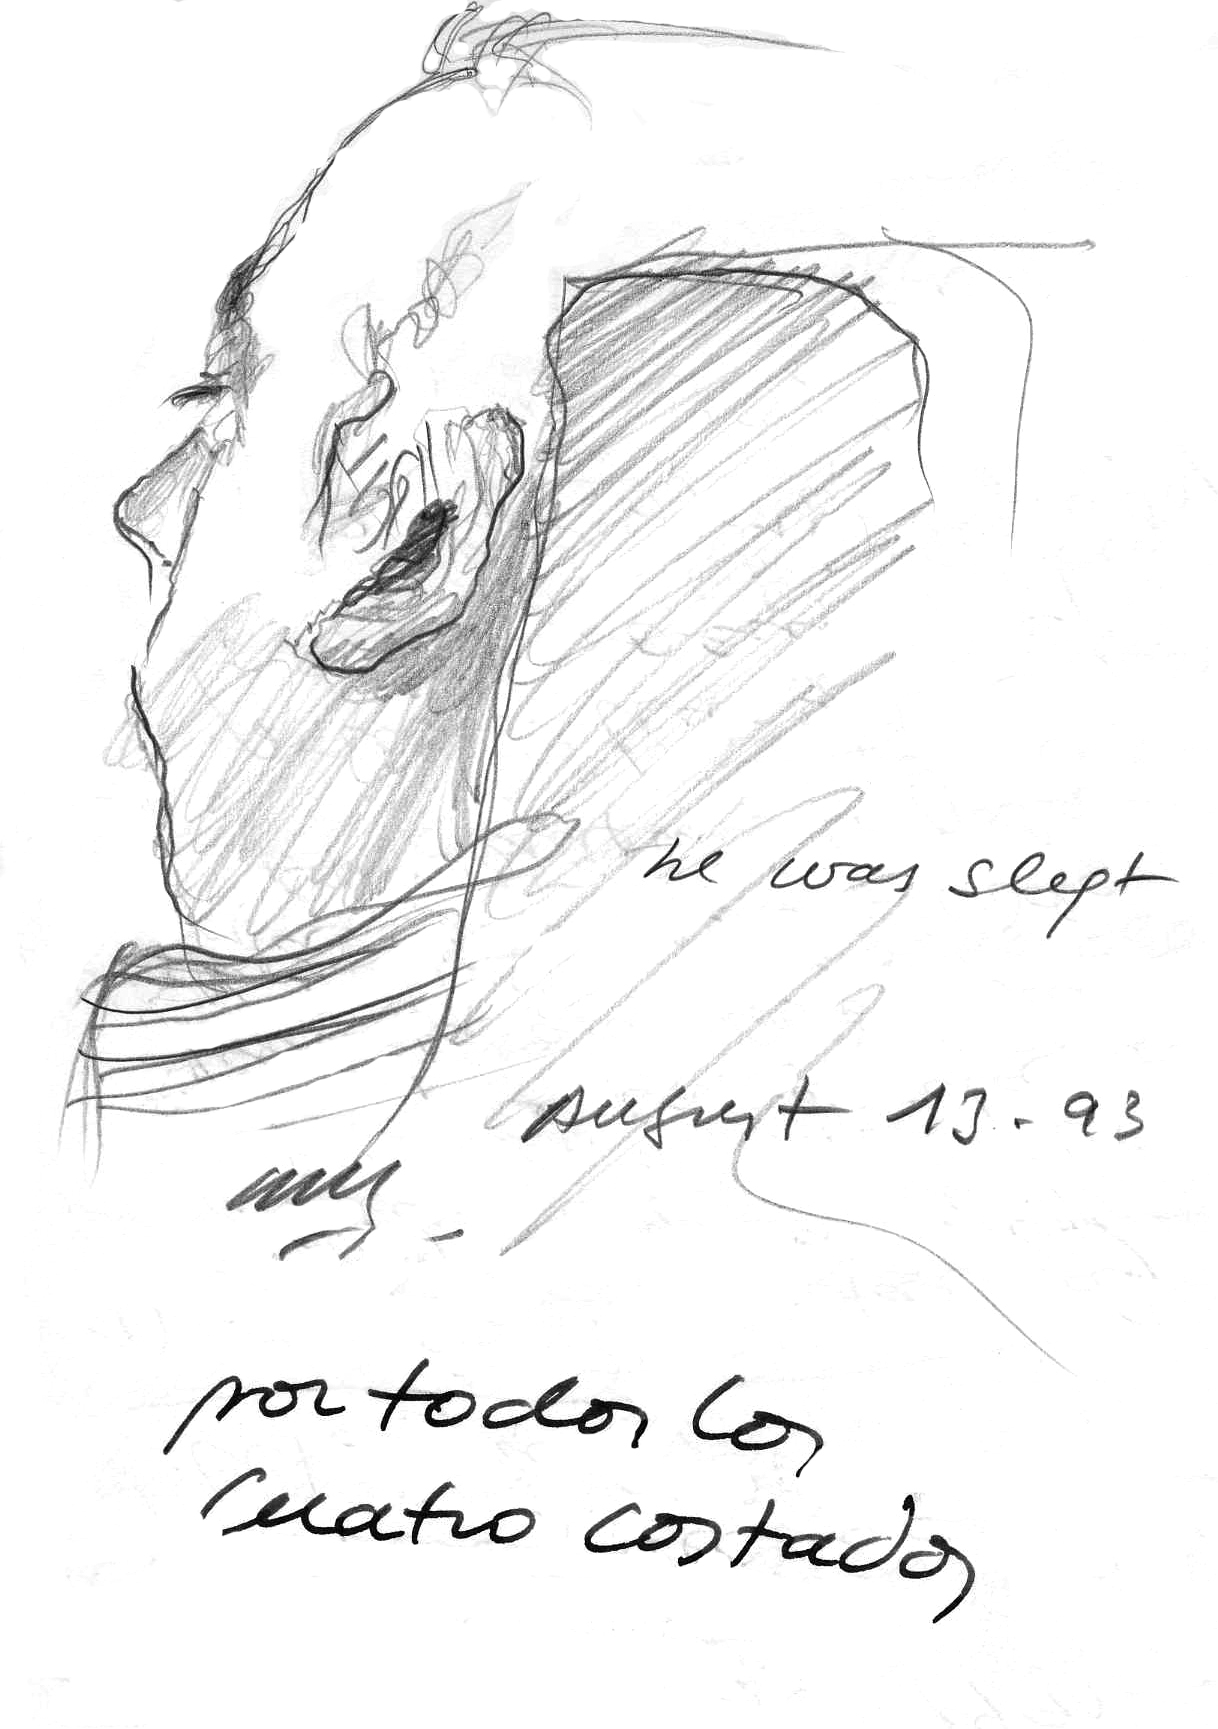 he was slept
August 13-93
por todos los
cuatro costados